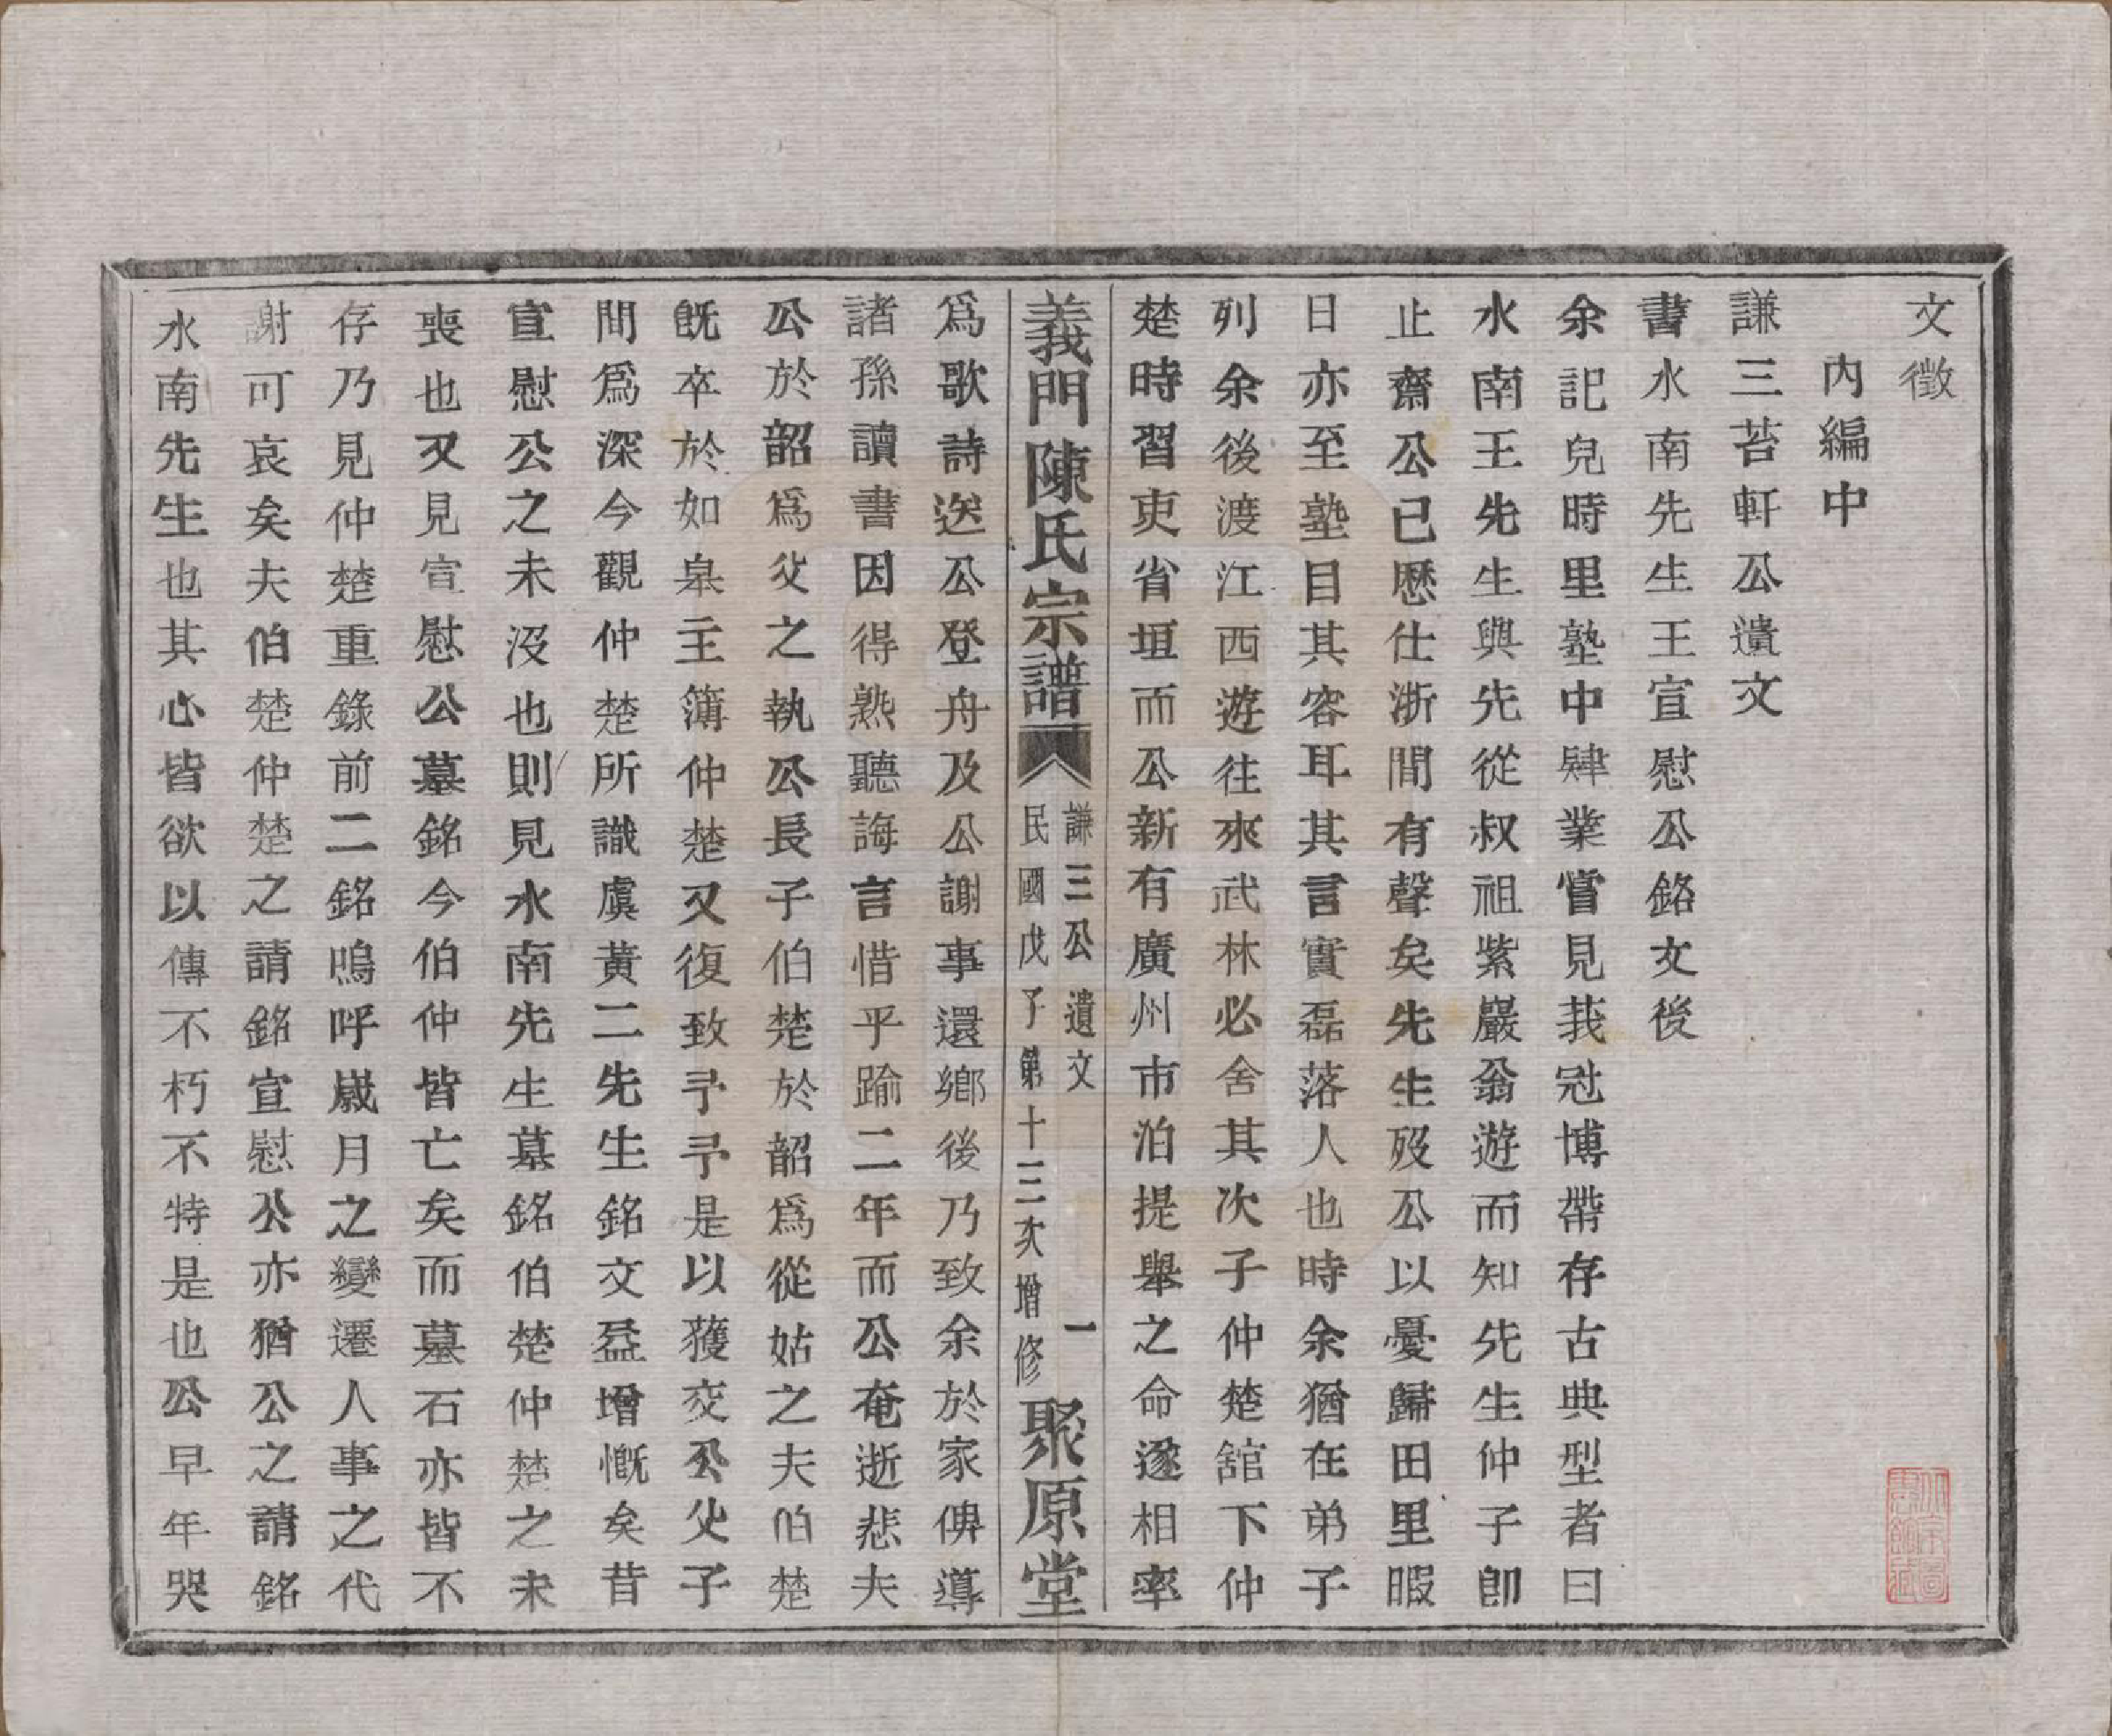 文徵
內編中
謙三苔軒公遺文
書水南先生王宣慰公銘文後
余記兒時里塾中肄業嘗見莪冠博帶存古典型者曰
水南王先生與先從叔祖紫巖翁遊而知先生仲子卽
止齋公已歷仕浙間有聲矣先生歿公以憂歸田里暇
日亦至塾目其容耳其言實磊落人也時余猶在弟子
列余後渡江西遊往來武林必舍其次子仲楚舘下仲
楚時習吏省垣而公新有廣州市泊提舉之命遂相率
義門陳氏宗譜
謙三公遺文 一
民國戊子第十三次增修
聚原堂
爲歌詩送公登舟及公謝事還鄉後乃致余於家俾導
諸孫讀書因得熟聽誨言惜乎踰二年而公奄逝悲夫
公於韶爲父之執公長子伯楚於韶爲從姑之夫伯楚
旣卒於如皋主簿仲楚又復致予予是以獲交公父子
間爲深今觀仲楚所識虞黃二先生銘文益增慨矣昔
宣慰公之未沒也則見水南先生墓銘伯楚仲楚之未
喪也又見宣慰公墓銘今伯仲皆亡矣而墓石亦皆不
存乃見仲楚重錄前二銘嗚呼歲月之變遷人事之代
謝可哀矣夫伯楚仲楚之請銘宣慰公亦猶公之請銘
水南先生也其心皆欲以傳不朽不特是也公早年哭